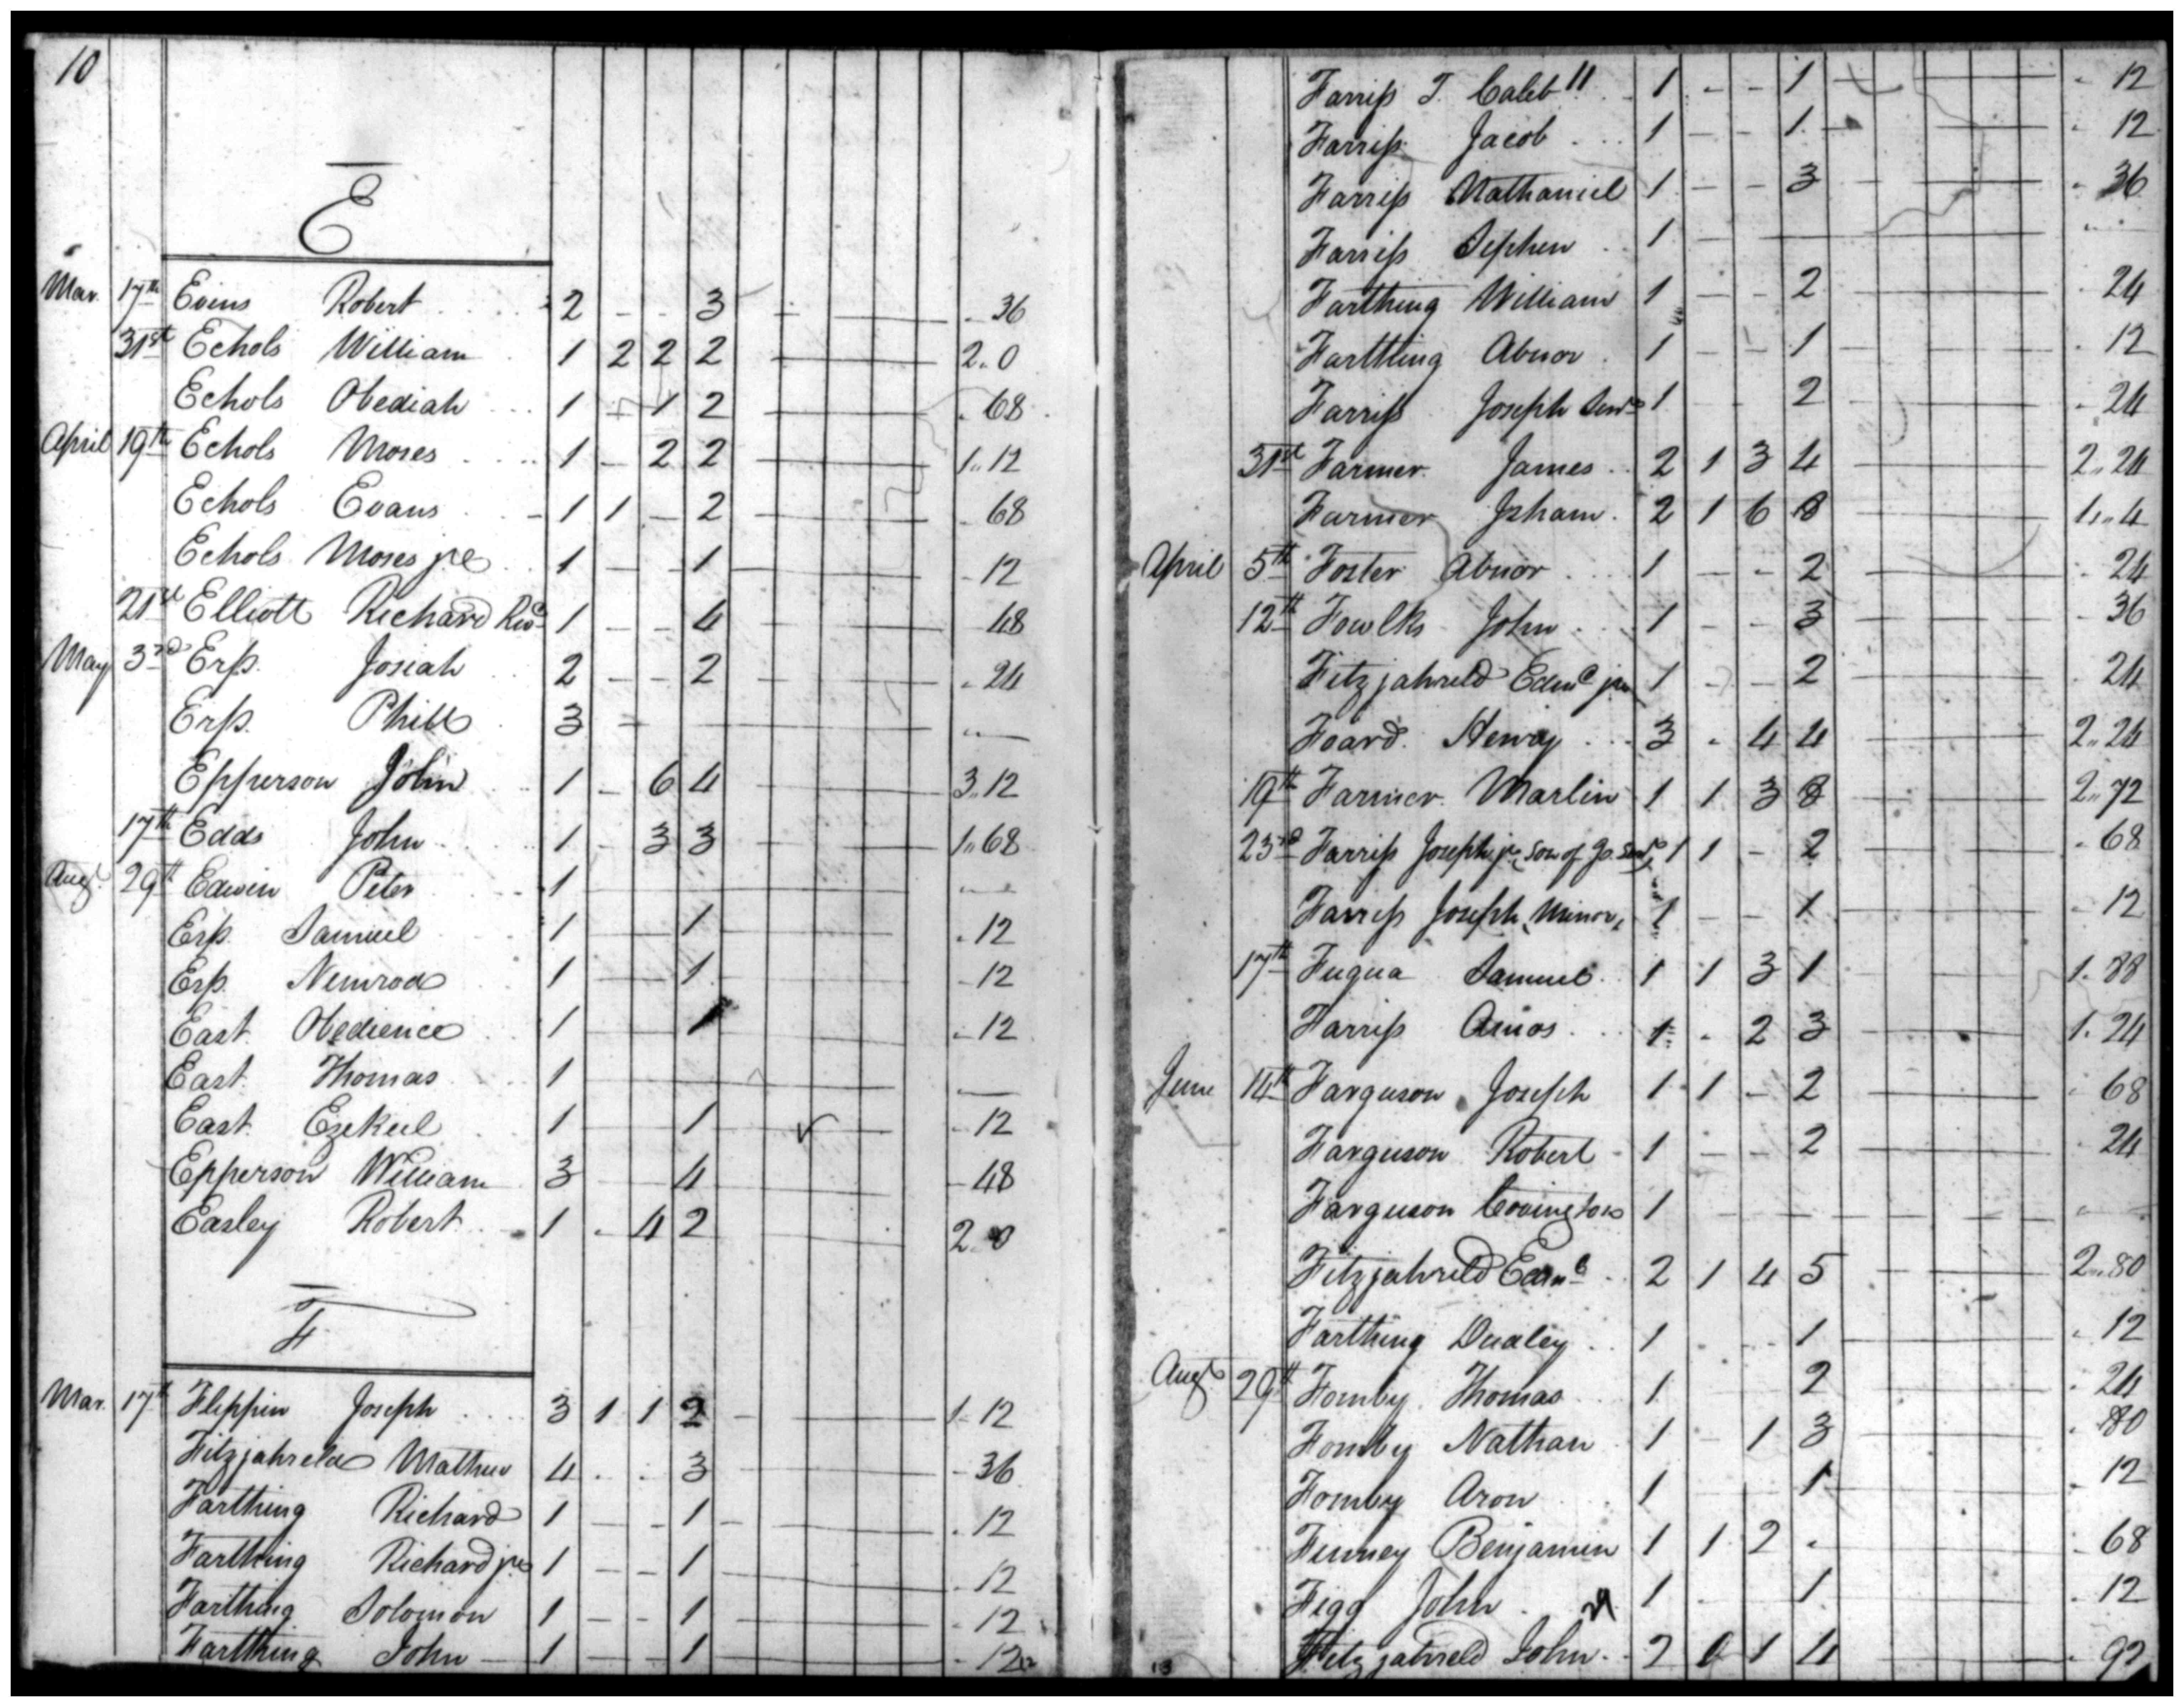 10
E
Mar. 17th Evins Robert 2 - - 3 - 36
31st Echols William 1 2 2 2 2.0
Echols Obediah 1 - 1 2 . 68
April 19th Echols Moses 1 - 2 2 1..12
Echols Evans 1 1 - 2 - 68
Echols Moses jr 1 - - 1 - 12
21st Elliott Richard 1 - - 4 48
May 3rd Erſs. Josiah 2 - - 2 - 24
Erſs. Phill 3 -
Epperson John 1 - 6 4 3..12
17th Edds John 1 - 3 3 1..68
Augt 29th Edwin Peter 1
Erſs. Samuel 1 1 - 12
Erſs. Nimrod 1 1 - 12
East. Obedience 1 1 - 12
East. Thomas 1
East. Ezekiel 1 1 - 12
Epperson William 3 4 - 48
Easley Robert 1 . 4 2 2..0
F
Mar. 17th Flippin Joseph 3 1 1 2 1-12
Fitzjahreld Mathew 4 . . 3 - 36
Farthing Richard 1 - - 1 - 12
Farthing Richard jr 1 - - 1 - 12
Farthing Solomon 1 - - 1 - 12
Farthing John 1 - - 1 - 12
Farriſs T. Caleb 1 - - 1 - 12
Farriſs Jacob 1 - - 1 - 12
Farriſs Nathaniel 1 - - 3 - 36
Farriſs Sephen 1 -
Farthing William 1 - - 2 - 24
Farthing Abnor 1 - - 1 - 12
Farriſs Joseph Senr 1 - 2 - 24
31st Farmer James 2 1 3 4 2..24
Farmer Isham 2 1 6 8 1..4
April 5th Foster Abnor 1 - - 2 - 24
12th Fowlks John 1 - - 3 - 36
Fitzjahreld Edmd jr 1 - - 2 - 24
Foard. Henry 3 - 4 4 2..24
19th Farmer Marlin 1 1 3 8 2..72
23rd Farriſs Joseph jr Son of Jo. Senr 1 1 - 2 - 68
Farriſs Joseph, Minor, 1 - - 1 - 12
17th Fuqua Samuel 1 1 3 1 1. 88
Farriſs Amos 1 - 2 3 1. 24
June 14th Farguson Joseph 1 1 - 2 - 68
Farguson Robert 1 - - 2 24
Farguson Covington 1 -
Fitzjahreld Edmd 2 1 4 5 2..80
Farthing Dudley 1 - - 1 - 12
Augt 29th Fomby Thomas 1 2 - 24
Fomby Nathan 1 - 1 3 . 80
Fomby Aron 1 1 - 12
Finney Benjamin 1 1 2 . - 68
Figg John 1 . 1 - 12
Fitzjahreld John 2 0 1 4 - 92